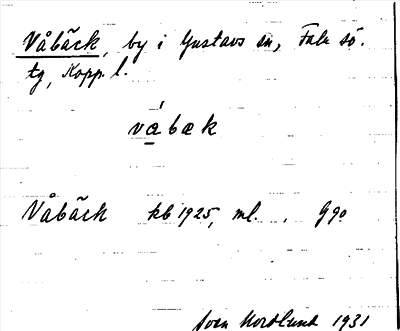 Våbäck, by i Gustavs sn, Falu sö.
tg, Kopp. l.
vábæk
Våbäck kb 1925, ml. , G90
Sven Nordlund 1931